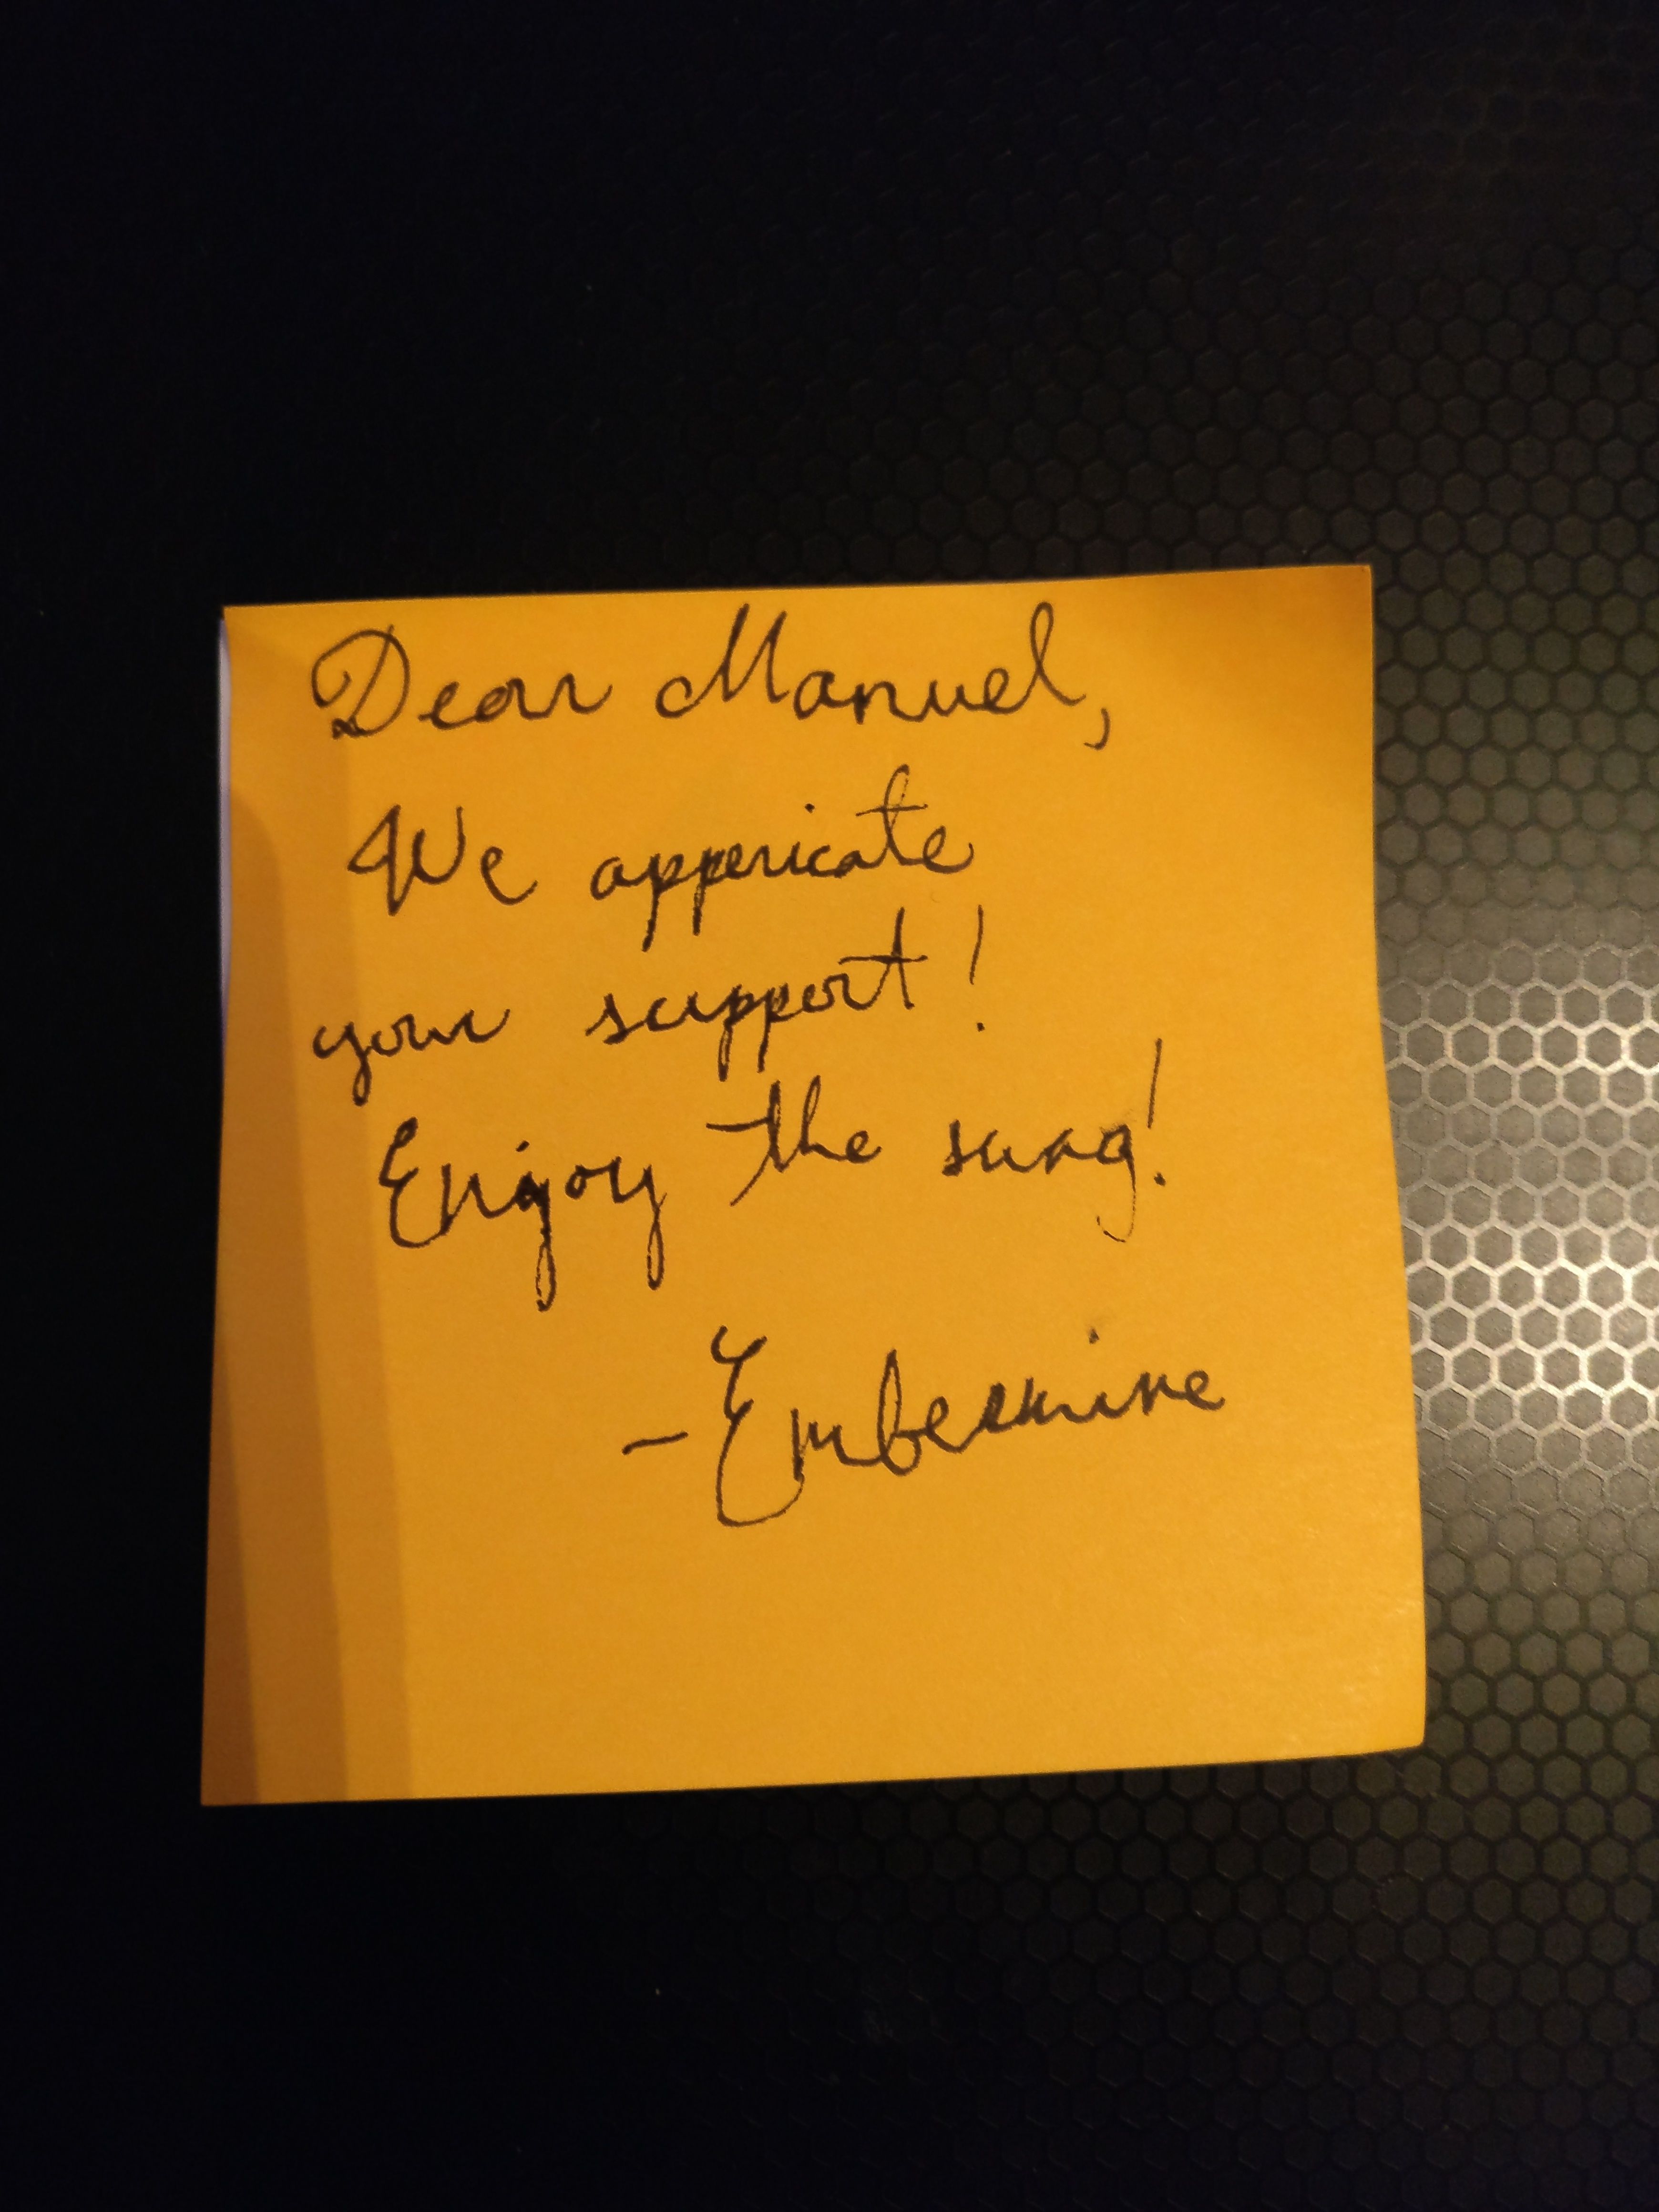 Dear Manuel,
We appericate
your support!
Enjoy the swag!
-Embermine